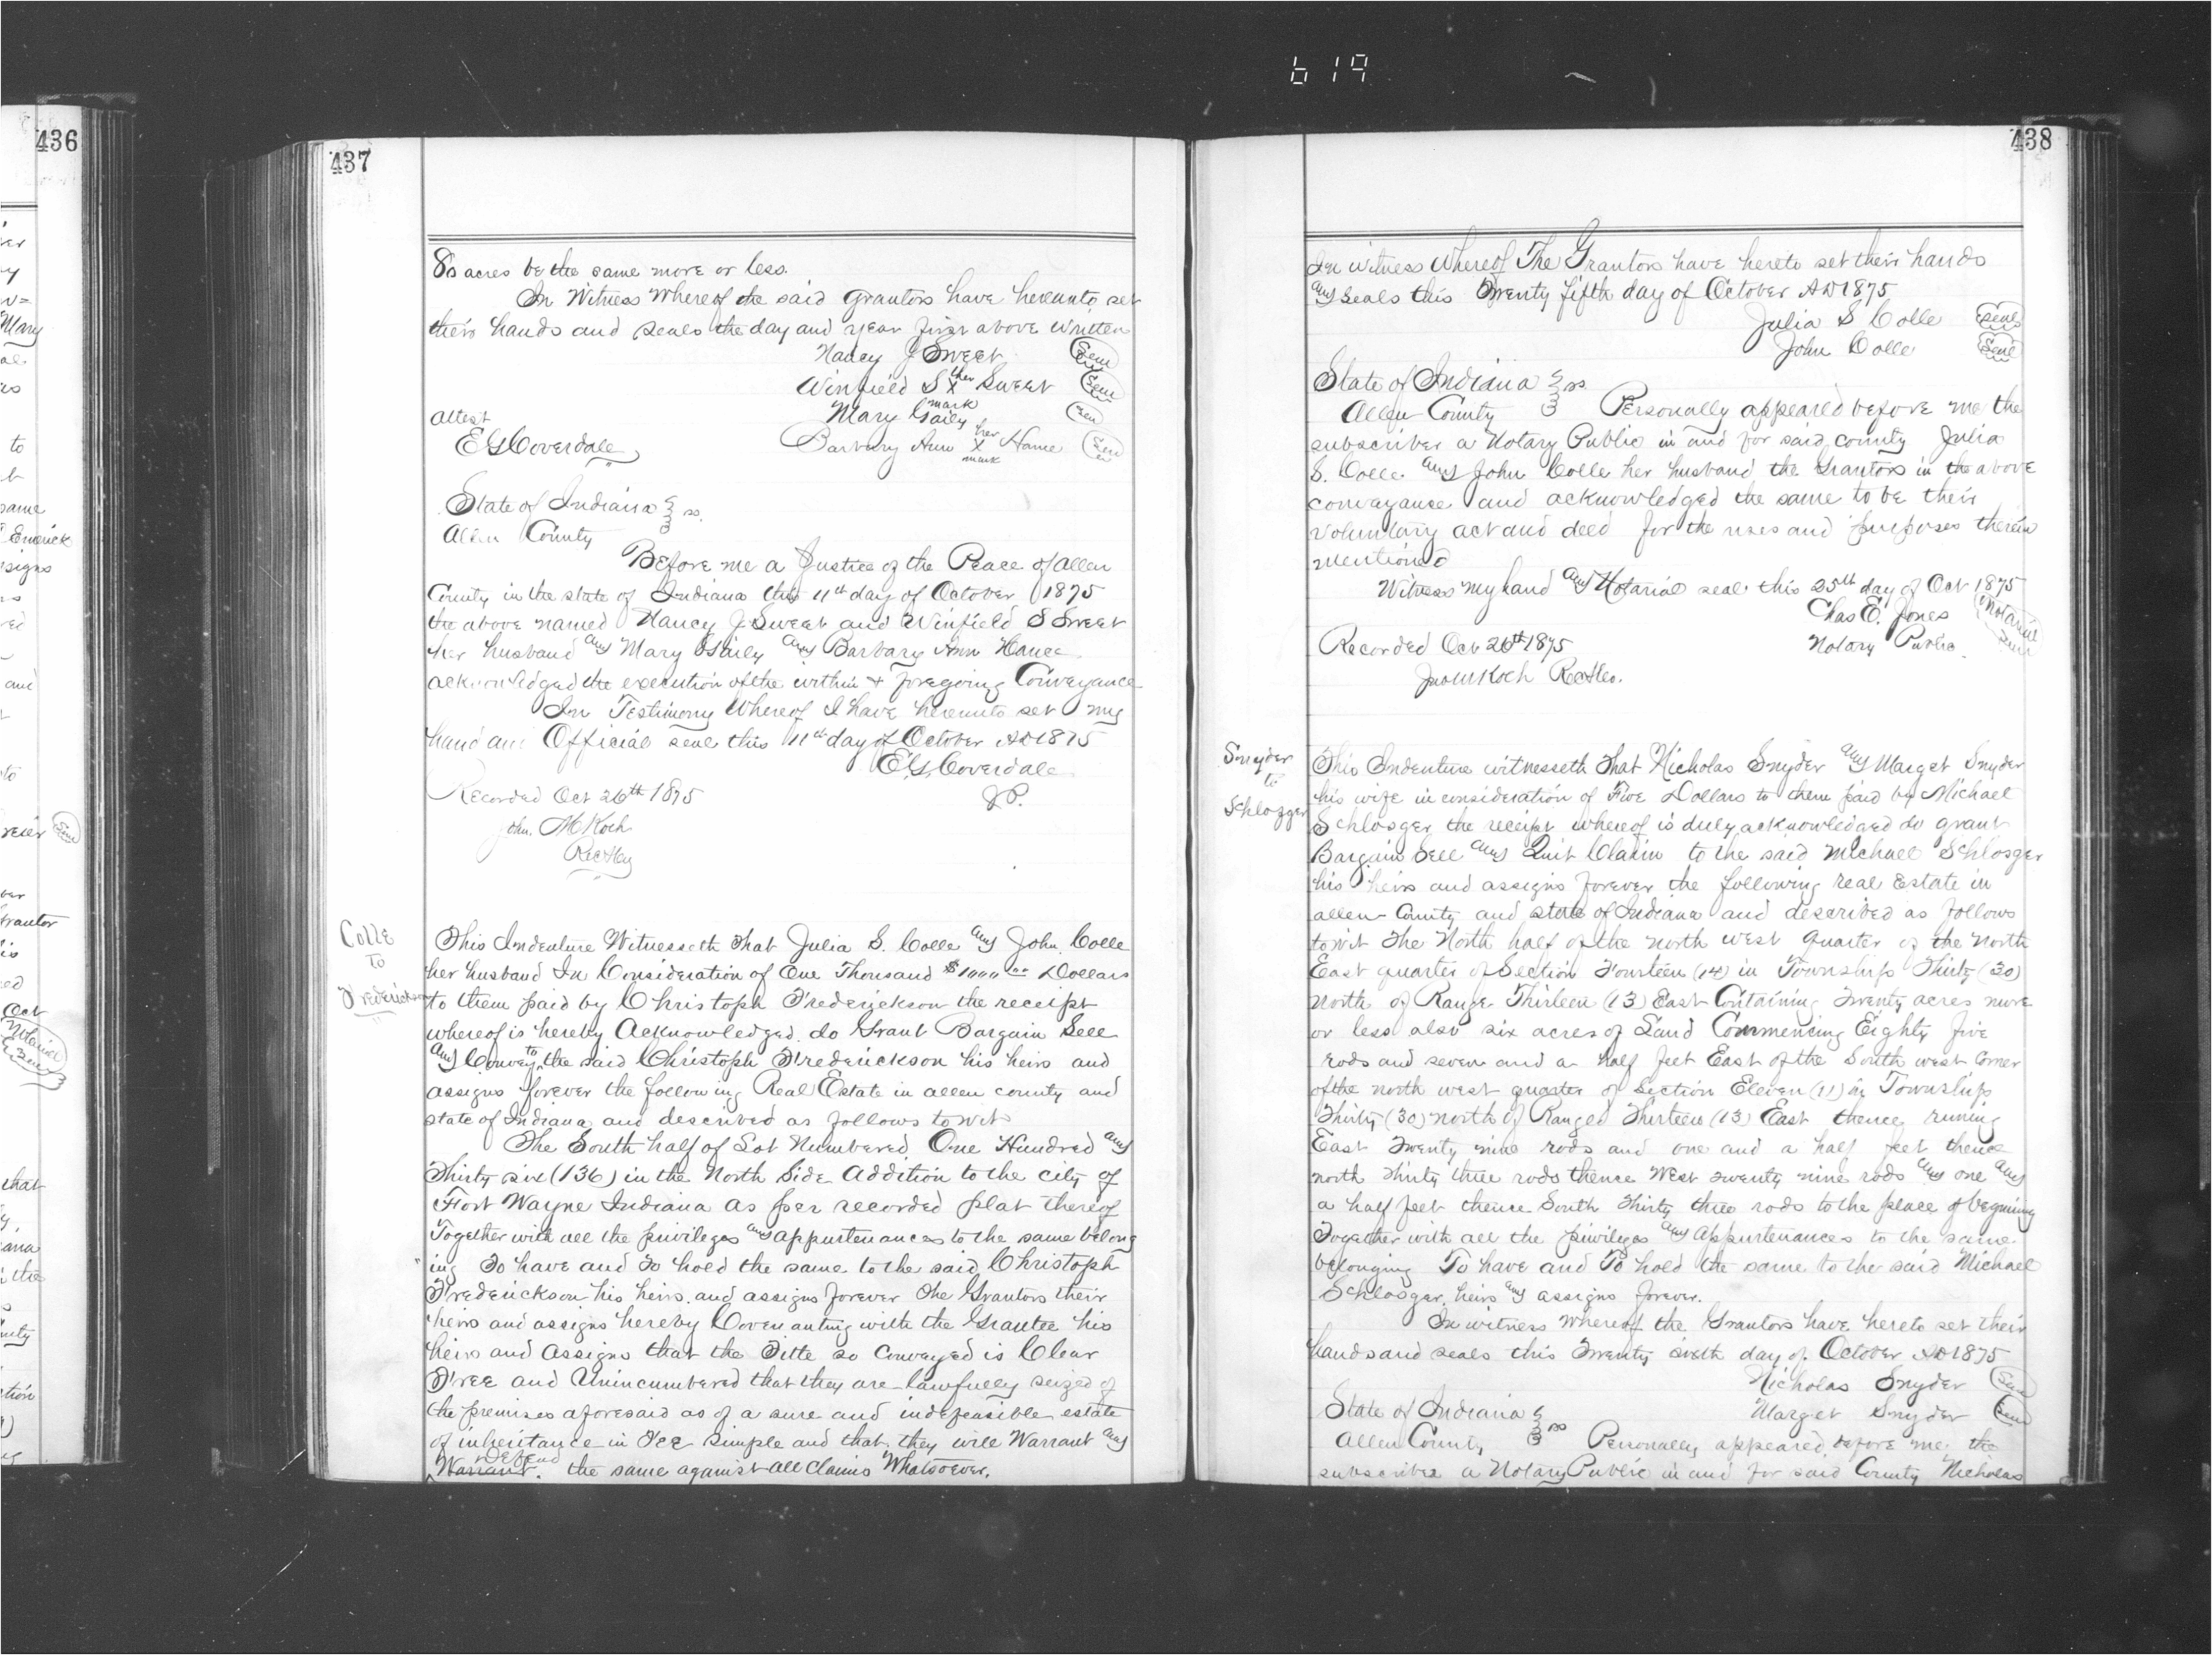 619
436
437
80 acres be the same more or less.
In Witness Whereof the said grantors have hereunto set
their hands and seals the day and year first above written
Nancy J Sweet Seal
Winfield S X Sweet Seal
her
mark
Mary Gaily Seal
Attest
E G Coverdale
Barbary Ann X Hance Seal
her
mark
State of Indiana ss.
Allen County
Before me a Justice of the Peace of Allen
County in the state of Indiana this 11th day of October 1875
the above named Nancy J Sweet and Winfield S Sweet
her husband and Mary Gaily and Barbary Ann Hance
acknowledged the execution of the within & foregoing Conveyance
In Testimony Whereof I have hereunto set my
hand and Official seal this 11th day of October AD 1875
E G Coverdale
J.P.
Recorded Oct 26th 1875
John. M Koch
Colle
to
Frederickson
This Indenture Witnesseth That Julia S. Colle and John Colle
her husband In Consideration of One Thousand $1000 00 Dollars
to them paid by Christoph Frederickson the receipt
whereof is hereby Acknowledged. do Grant Bargain Sell
and Convey to the said Christoph Frederickson his heirs and
assigns forever the following Real Estate in allen county and
state of Indiana and descrived as follows to wit
The South half of Lot Numbered One Hundred and
Thirty six (136) in the North Side Addition to the city of
Fort Wayne Indiana as per recorded plat thereof
Together with all the privileges and appurtenances to the same belong
ing To have and To hold the same to the said Christoph
Frederickson his heirs. and assigns forever The Grantors their
heirs and assigns hereby Covenanting with the Grantee his
heirs and Assigns that the Title so Conveyed is Clear
Free and Unincumbered that they are lawfully seized of
the premises aforesaid as of a sure and indefeasible estate
of inheritance in Fee Simple and that they will Warrant and
Defend
Warrant. the same against all Claims Whatsoever.
438
In witness Whereof The Grantors have hereto set their hands
and seals this Twenty fifth day of October AD 1875
Julia S Colle Seal
John Colle Seal
State of Indiana ss
Allen County Personally appeared before me the
subscriber a Notary Public in and for said county Julia
S. Colle and John Colle her husband the Grantors in the above
conveyance and acknowledged the same to be their
voluntary act and deed for the uses and purposes therein
mentioned
Witness my hand and Notarial seal this 25th day of Oct 1875
Chas E. Jones Notarial Seal
Notary Public
Recorded Oct 26th 1875
Jno M Koch
Snyder
to
Schlogger
This Indenture witnesseth That Nicholas Snyder and Marget Snyder
his wife in consideration of Five Dollars to them paid by Michael
Schlosger the receipt whereof is duly acknowledged do grant
Bargain Sell and Quit Claim to the said Michael Schlosger
his heirs and assigns forever the following real Estate in
allen County and state of Indiana and described as follows
to wit The North half of the north west quarter of the North
East quarter of Section Fourteen (14) in Township Thirty (30)
north of Range Thirteen (13) East Containing Twenty acres more
or less also six acres of Land Commencing Eighty five
rods and seven and a half feet East of the South west corner
of the north west quarter of Section Eleven (11) in Township
Thirty (30) north of Ranged Thirteen (13) East thence runing
East Twenty nine rods and one and a half feet thence
north Thirty three rods thence West Twenty nine rods and one and
a half feet thence South Thirty three rods to the place of beginning
Together with all the privileges and Appurtenances to the same
belonging To have and To hold the same to the said Michael
Schlosger, heirs and assigns forever.
In witness Whereof the Grantors have hereto set their
hands and seals this Twenty sixth day of October AD 1875
Nicholas Snyder Seal
Marget Snyder Seal
State of Indiana ss
Allen County Personally appeared before me the
subscriber a Notary Public in and for said County Nicholas